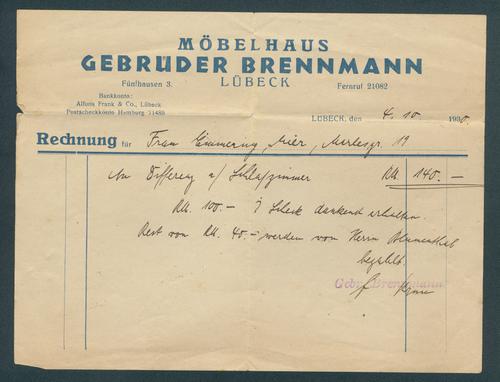 MÖBELHAUS
GEBRÜDER BRENNMANN
Fünfhausen 3. LÜBECK Fernruf 21082
Bankkonto:
Alfons Frank & Co., Lübeck
Postscheckkonto Hamburg 71489
LÜBECK, den 4. 10. 193
Rechnung für Frau Meier, 19
An Differenz a/ Schlafzimmer RM 140.—
RM. 100.— Scheck dankend erhalten.
Rest von RM. 40.— werden von Herrn Blumenthal
bezahlt.
Gebr. Brennmann